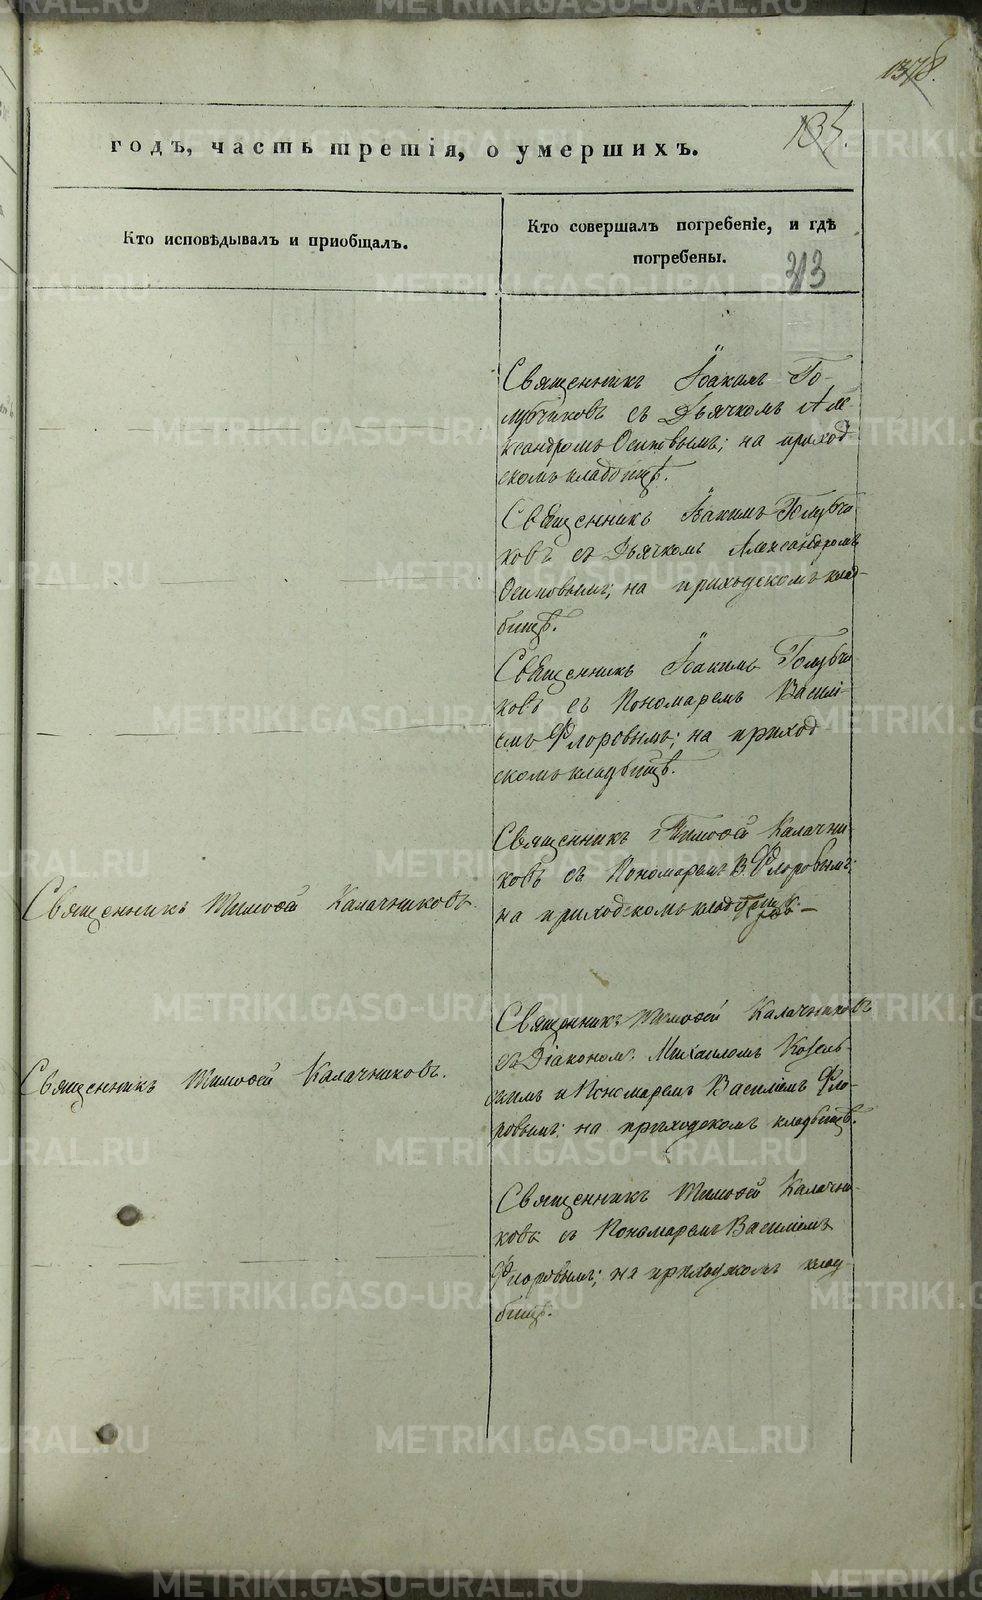 1378.
годъ, часть третія, о умершихъ.
135.
Кто исповѣдывалъ и пріобщалъ.
Кто совершалъ погребеніе, и гдѣ
погребены.
313
Священникъ Іоакимъ Го-
лубчиковъ съ Дьячкомъ Але
ксандромъ Осиповымъ; на приход
скомъ кладбищѣ.
Священникъ Іоакимъ Голубчи
ковъ съ Дьячкомъ Александромъ
Осиповымъ; на приходскомъ клад-
бищѣ.
Священникъ Іоакимъ Голубчи
ковъ съ Пономаремъ Василі-
емъ Флоровымъ; на приход
скомъ кладбищѣ.
Священникъ Тимоѳей Калачниковъ
Священникъ Тимоѳей Калачни-
ковъ съ Пономаремъ В. Флоровымъ;
на приходскомъ кладбищѣ.
Священникъ Тимоѳей Калачниковъ.
Священникъ Тимоѳей Калачниковъ
съ Діакономъ Михаиломъ
и Пономаремъ Василіемъ Фло-
ровымъ; на приходскомъ кладбищѣ.
Священникъ Тимоѳей Калачни-
ковъ съ Пономаремъ Василіемъ
Флоровымъ; на приходскомъ клад-
бищѣ.
METRIKI.GASO-URAL.RU